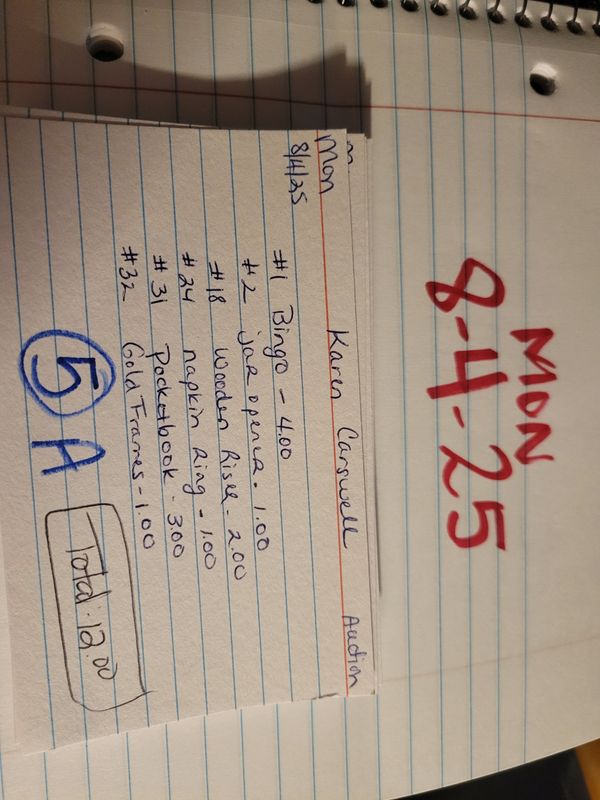 MON
8-4-25
m
Mon Karen Carswell Auction
8/4/25
#1 Bingo - 4.00
#2 jar opener - 1.00
#18 Wooden Riser - 2.00
#24 napkin Ring - 1.00
#31 Pocketbook - 3.00
#32 Gold Frames - 1.00
5 A
Total · 12.00